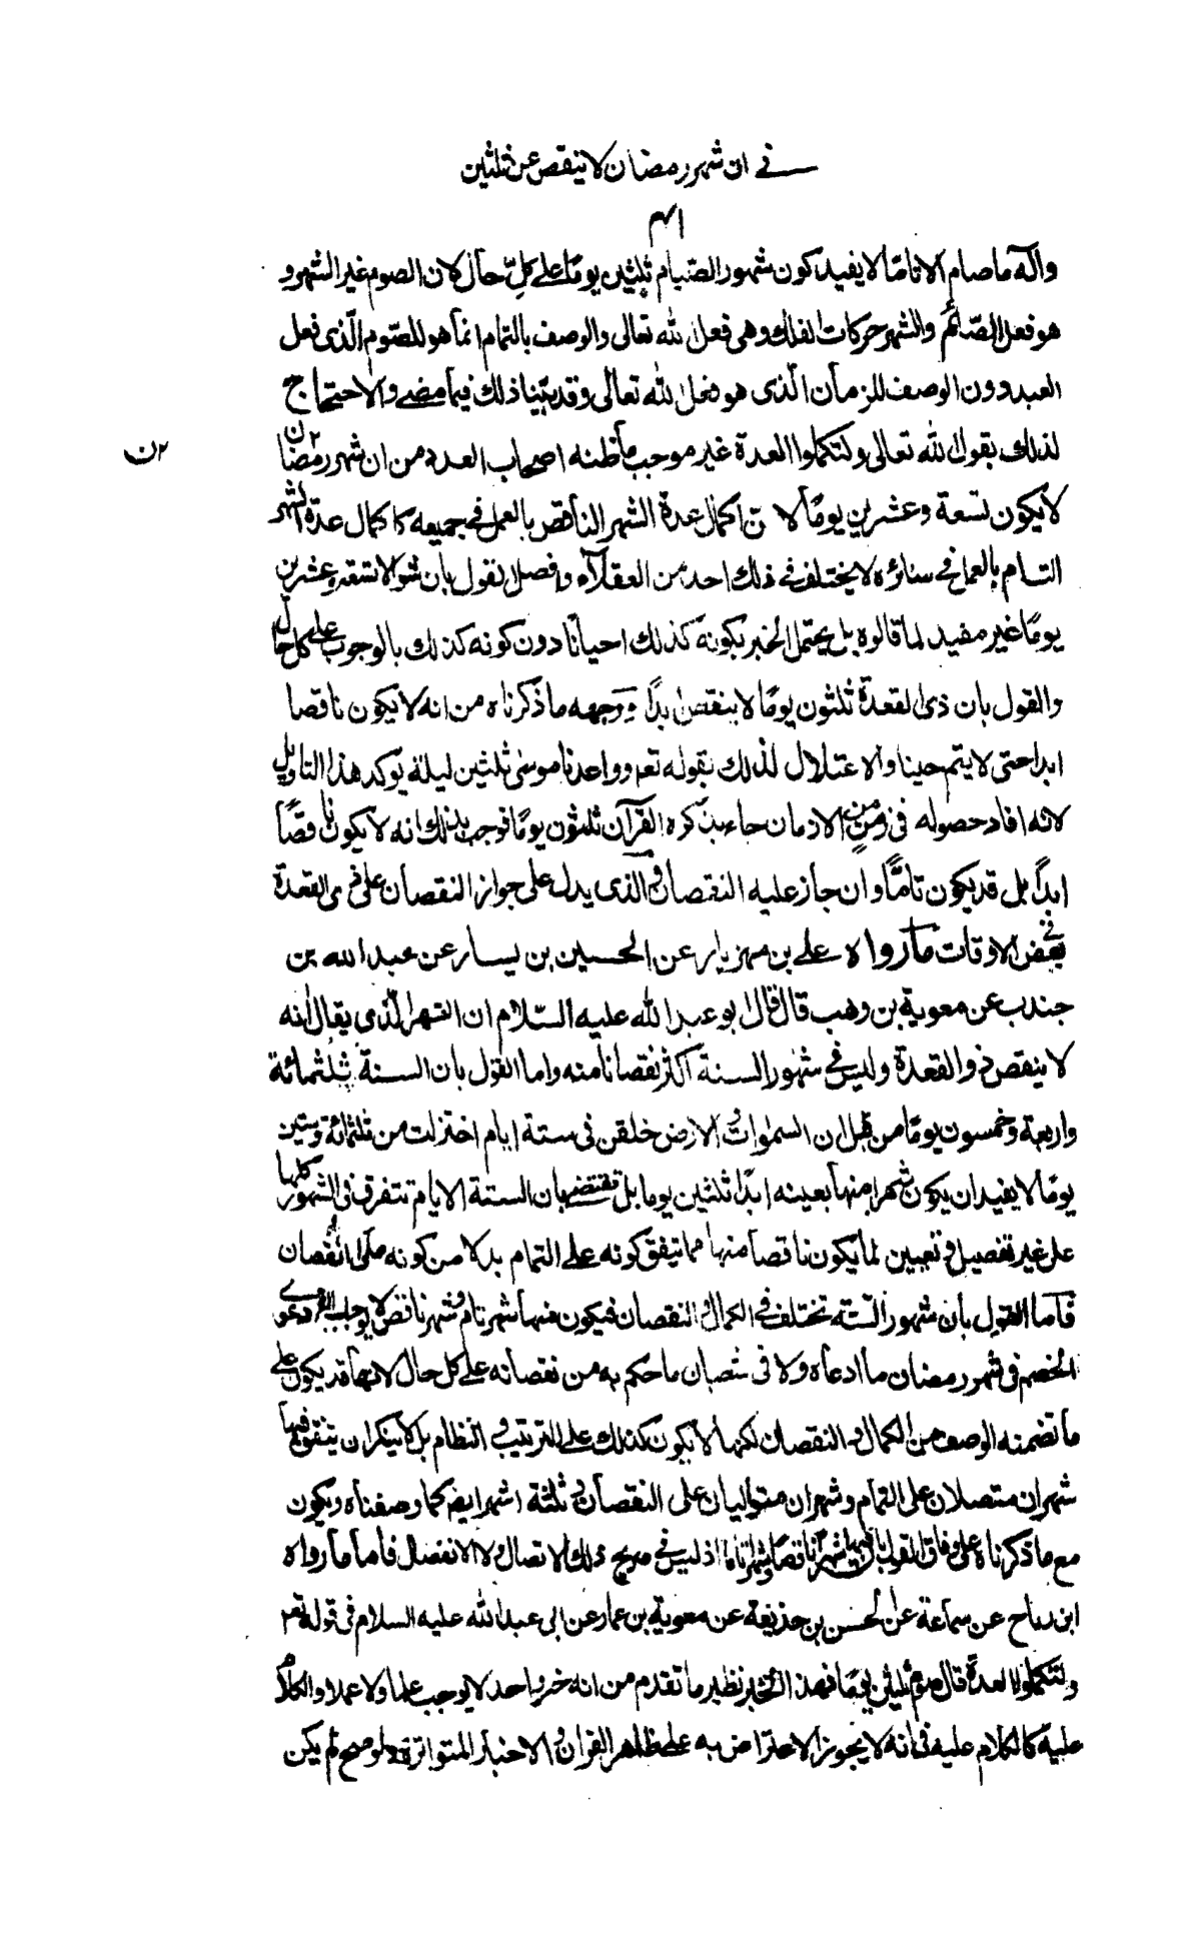 في ان شهر رمضان لا ينقص عن ثلثين
واله ما صام الا تاما لا يفيد كون شهور الصيام ثلثين يوما على كل حال لان الصوم غير الشهر و
هو فعل الصائم والشهر حركات الفلك وهي فعل الله تعالى والوصف بالتمام انما هو للصوم الذي فعل
العبد دون الوصف للزمان الذي هو فعل الله تعالى وقد بينا ذلك فيما مضى والاحتجاج
لذلك بقول الله تعالى ولتكملوا العدة غير موجب ما ظنه اصحاب العدد من ان شهر رمضان
لا يكون تسعة وعشرين يوما لان اكمال عدة الشهر الناقص بالعمل في جميعه كاكمال عدة الشهر
التام بالعمل في سائره لا يختلف في ذلك احد من العقلاء وفصل القول بان شوالا تسعة وعشرين
يوما غير مفيد لما قالوه بل يحتمل الخبر بكونه كذلك احيانا دون كونه كذلك بالوجوب على كل حال
والقول بان ذى القعدة ثلثون يوما لا ينقص ابدا ووجهه ما ذكرناه من انه لا يكون ناقصا
ابدا حتى لا يتم حينا والاعتلال لذلك بقوله تعم وواعدنا موسى ثلثين ليلة يوكد هذا التاويل
لانه افاد حصوله في زمن من الازمان جاء بذكره القرآن ثلثون يوما فوجب بذلك انه لا يكون ناقصا
ابدا بل قد يكون تاما وان جاز عليه النقصان والذى يدل على جواز النقصان على ذى القعدة
في بعض الاوقات ما رواه على بن مهزيار عن الحسين بن يسار عن عبد الله بن
جندب عن معوية بن وهب قال قال ابو عبد الله عليه السلام ان الشهر الذى يقال انه
لا ينقص ذو القعدة وليس في شهور السنة اكثر نقصانا منه واما القول بان السنة ثلثمائة
واربعة وخمسون يوما من قبل ان السموات والارض خلقن في ستة ايام اختزلت من ثلثمائة وستين
يوما لا يفيد ان يكون شهرا منها بعينه ابدا ثلثين يوما بل تقتضى بان الستة الايام تتفرق في الشهور كلها
على غير تفصيل وتعيين لما يكون ناقصا منها مما يتفق كونه على التمام بدلا من كونه على النقصان
فاما القول بان شهور السنة تختلف في الكمال والنقصان فيكون منها شهر تام وشهر ناقص لا يوجب دعوى
الخصم في شهر رمضان ما ادعاه ولا في شعبان ما حكم به من نقصانه على كل حال لانها قد يكون على
ما تضمنه الوصف من الكمال والنقصان لكنها لا يكون كذلك على الترتيب والنظام بل لا ينكر ان يتفق فيها
شهران متصلان على التمام وشهران متواليان على النقصان وثلثة اشهر ايض كما وصفناه ويكون
مع ما ذكرناه على وفاق القول بان فيها شهرا ناقصا وشهرا تاما اذ ليس في صريح ذلك الاتصال ولا الانفصال فاما ما رواه
ابن رباح عن سماعة عن الحسن بن حذيفة عن معوية بن عمار عن ابى عبد الله عليه السلام في قوله تعم
ولتكملوا العدة قال صوم ثلثين يوما فهذا الخبر نظير ما تقدم من انه خبر واحد لا يوجب علما ولا عملا والكلام
عليه كالكلام عليه في انه لا يجوز الاعتراض به على ظاهر القران والاخبار المتواترة ولو صح لم يكن